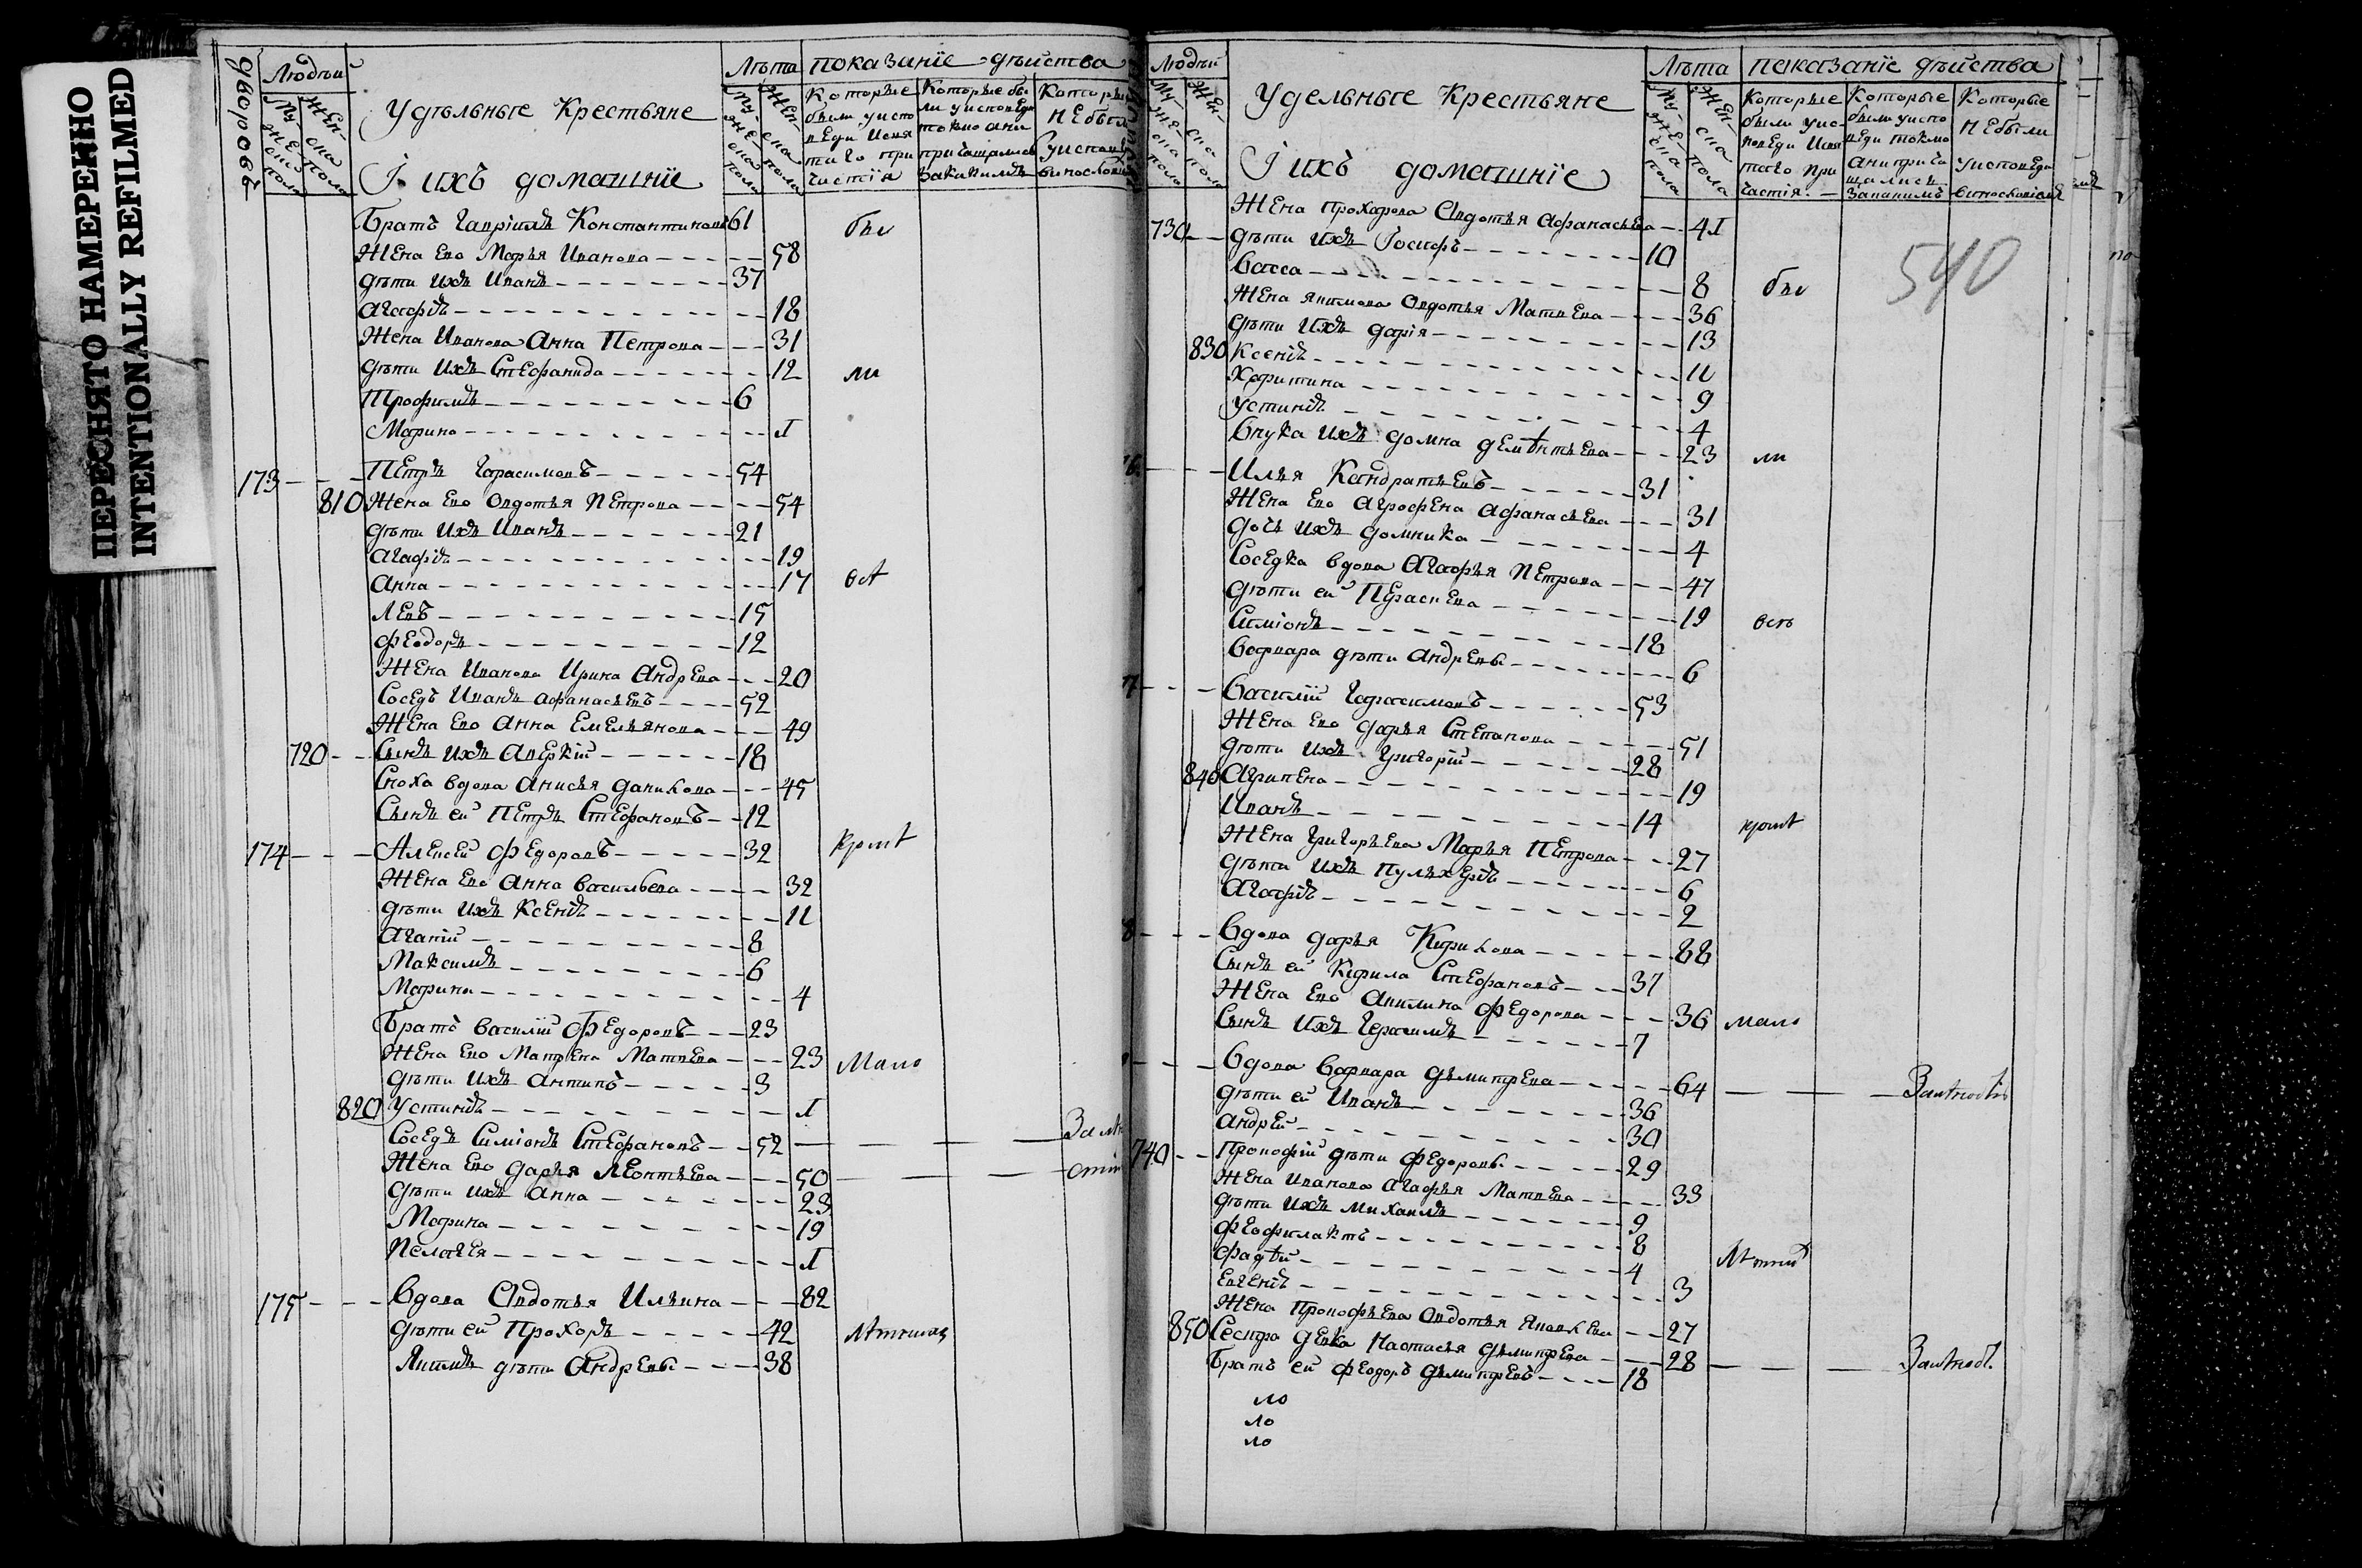 ПЕРЕСНЯТО НАМЕРЕННО
INTENTIONALLY REFILMED
дворовъ
Людей
Мужеска пола
Женска пола
Удѣльные Крестьяне
І ихъ домашнїе
Лѣта
Мужеска пола
Женска пола
показанїе дѣйства
Которые были у испо веди и святаго при чистїя
Которые бы ли у исповеди токмо а не причащались
не были
Братъ Гаврїилъ Константиновъ 61 бы
Жена ево Марья Иванова 58
дѣти ихъ Иванъ 37
Агафїя 18
Жена Иванова Анна Петрова 31
дѣти ихъ Стефанида 12 ли
Трофимъ 6
Марина 1
173 Петръ Герасимовъ 54
810 Жена ево Овдотья Петрова 54
дѣти ихъ Иванъ 21
Агафїя 19
Анна 17 всѣ
Левъ 15
Феодоръ 12
Жена Иванова Ирина Андрева 20
Соседъ Иванъ Афанасьевъ 52
Жена ево Анна Емельянова 49
720 Сынъ ихъ Аверкїй 18
Сноха вдова Анисья Данилова 45
Сынъ ей Петръ Стефановъ 12
174 Алексей Федоровъ 32 кромѣ
Жена ево Анна Васильева 32
дѣти ихъ Ксенїя 11
Агапїй 8
Максимъ 6
Марина 4
Братъ Василїй Федоровъ 23
Жена ево Матрена Матвева 23 мало
дѣти ихъ Антипъ 3
820 Устинїя 1
Соседъ Симїонъ Стефановъ 52
Жена ево Дарья Леонтьева 50
дѣти ихъ Анна 23
Марина 19
Пелагея 1
175 Вдова Овдотья Ильина 82
дѣти ей Прохоръ 42
Якимъ дѣти Андревы 38
Людей
Мужеска пола
Женска пола
Удельные Крестьяне
І ихъ домашнїе
Лѣта
Мужеска пола
Женска пола
показанїе дѣйства
Которые были у исповеди и святаго при частїя
Которые были у испо веди токмо а не прича щались
Которые не были у исповеди
540
Жена Прохорова Овдотья Афанасьева 41
730 дѣти ихъ Іосифъ 10
Васса 8 бы
Жена Якимова Овдотья Матвева 36
дѣти ихъ Дарїя 13
830 Ксенїя 11
Харитина 9
Устинїя 4
Внука ихъ Домна Дементьева 23 ли
Илья Кандратьевъ 31
Жена ево Агрофена Афанасьева 31
дочь ихъ Домника 4
Соседка вдова Агафья Петрова 47
дѣти ей Парасковья 19 всѣ
Симїонъ 18
Варвара дѣти Андревы 6
Василїй Герасимовъ 53
Жена ево Дарья Степанова 51
дѣти ихъ Григорїй 28
840 Агрипена 19
Иванъ 14 кромѣ
Жена Григорьева Марья Петрова 27
дѣти ихъ Пульхерїя 6
Агафїя 2
Вдова Дарья Кирилова 88
Сынъ ей Кирила Стефановъ 37
Жена ево Акилина Федорова 36 мало
Сынъ ихъ Герасимъ 7
Вдова Варвара Дьмитрева 64
дѣти ей Иванъ 36
Андрей 30
740 Прокофїй дѣти Федоровы 29
Жена Иванова Агафья Матвева 33
дѣти ихъ Михаилъ 9
Феофилактъ 8
Фадѣй 4
Евгенїя 3
Жена Прокофьева Овдотья Яковлева 27
850 Сестра девка Настасья Дьмитрева 28
Братъ ей Феодоръ Дьмитревъ 18
ло
ло
ло